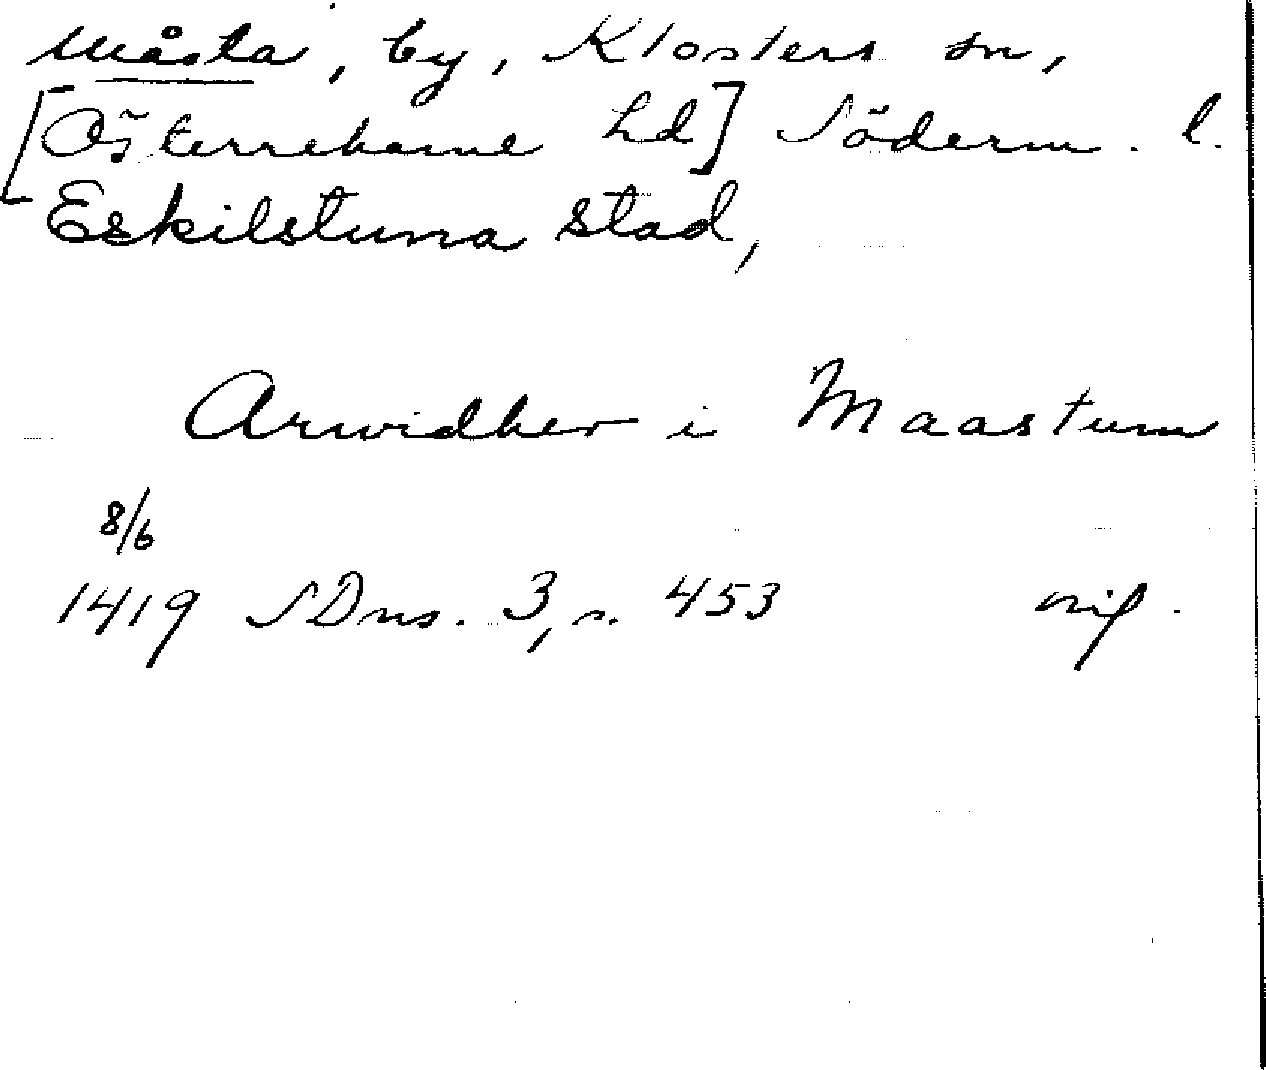 Måsta, by, Klosters sn,
[Österrekarne hd] Söderm. l.
Eskilstuna stad,
Arwidher i Maastum
8/6
1419 SDns. 3, s. 453 orig.